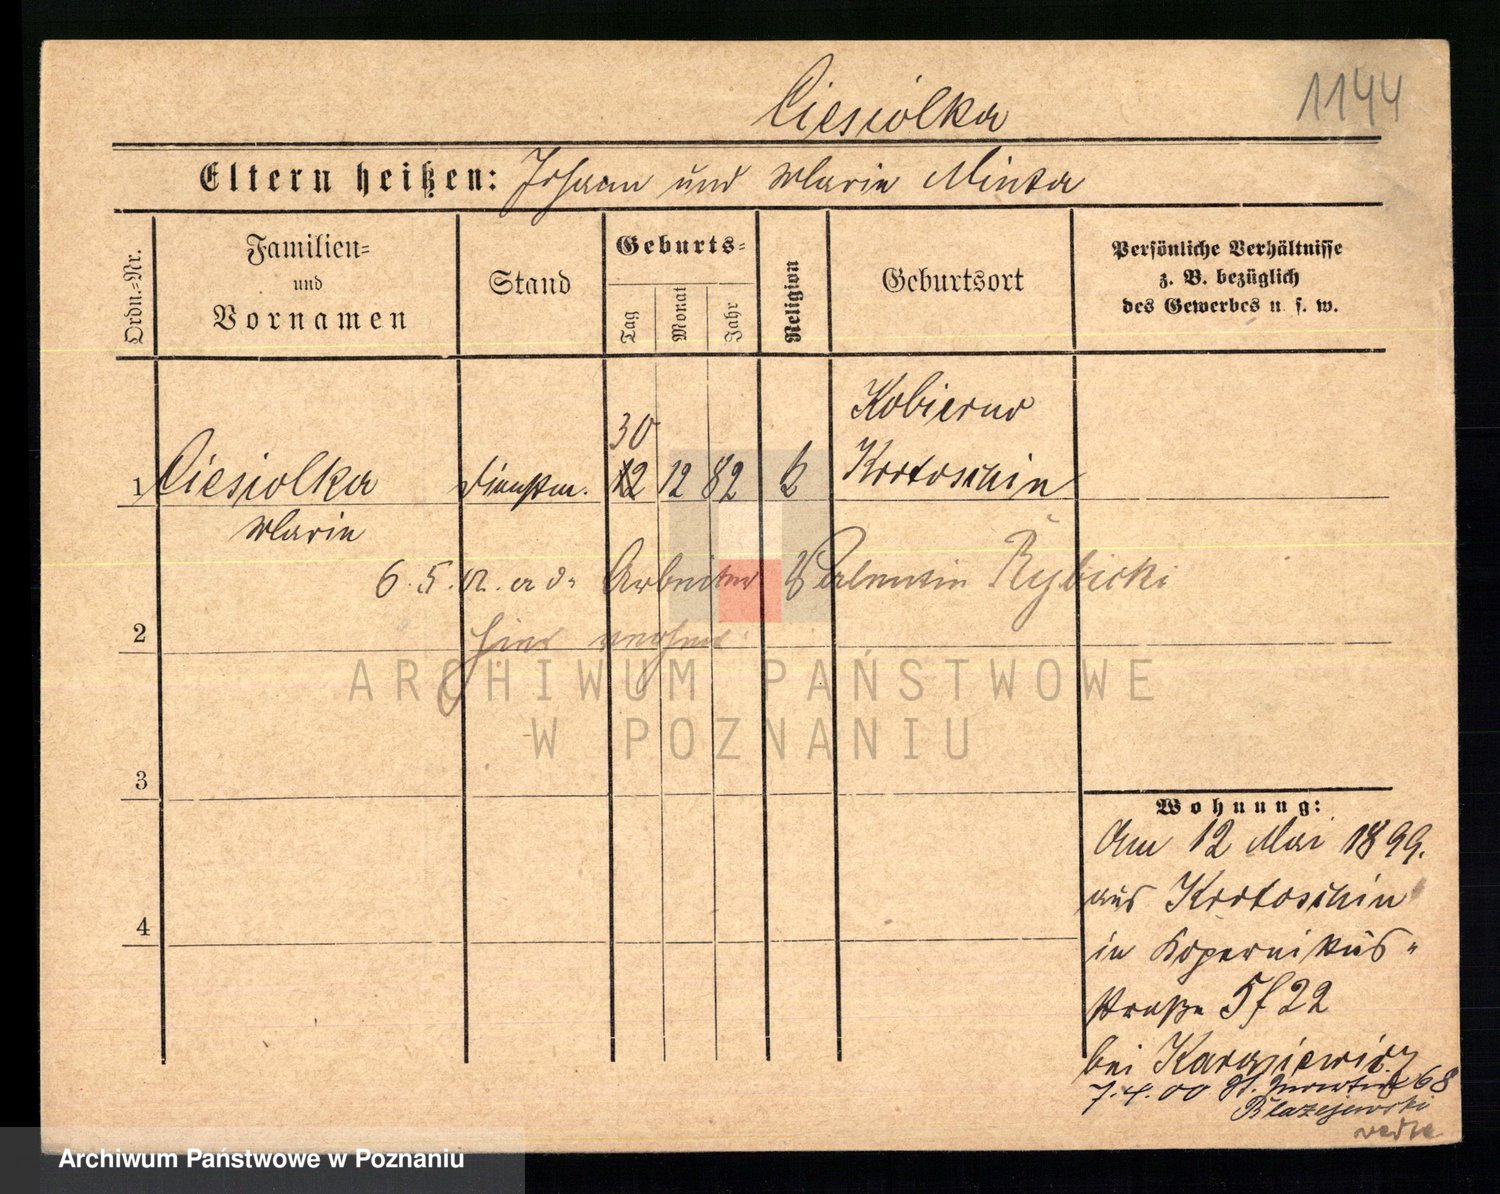 1144
Ciesiolka
Eltern heißen: Johann und Marie Minta
Ordn.-Nr.
Familien-
und
Vornamen
Stand
Geburts-
Tag
Monat
Jahr
Religion
Geburtsort
Persönliche Verhältnisse
z. B. bezüglich
des Gewerbes u. s. w.
Kobierno
30
1 Ciesiolka Dienstm. 12 12 82 k Krotoschin
Marie
6. 5. Arbeiter Valentin Rybicki
2
hier
ARCHIWUM PAŃSTWOWE
W POZNANIU
3
4
Wohnung:
Am 12 Mai 1899.
aus Krotoschin
in Kopernikus-
straße 5 f 22
bei
7.4.00 St. Martin 68
Blazejewski
Archiwum Państwowe w Poznaniu